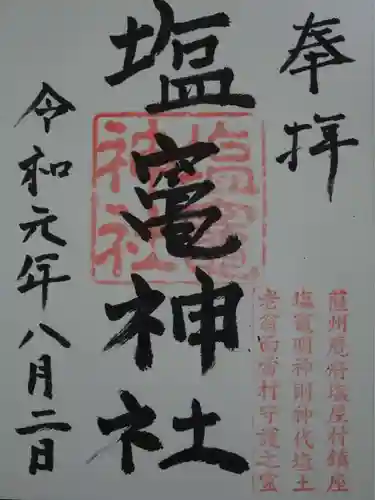 奉拝
塩竈神社
令和元年八月二日
塩竈神社
薩州鹿府塩屋村鎮座
塩竈明神則神代塩土
老翁而當村守護之霊